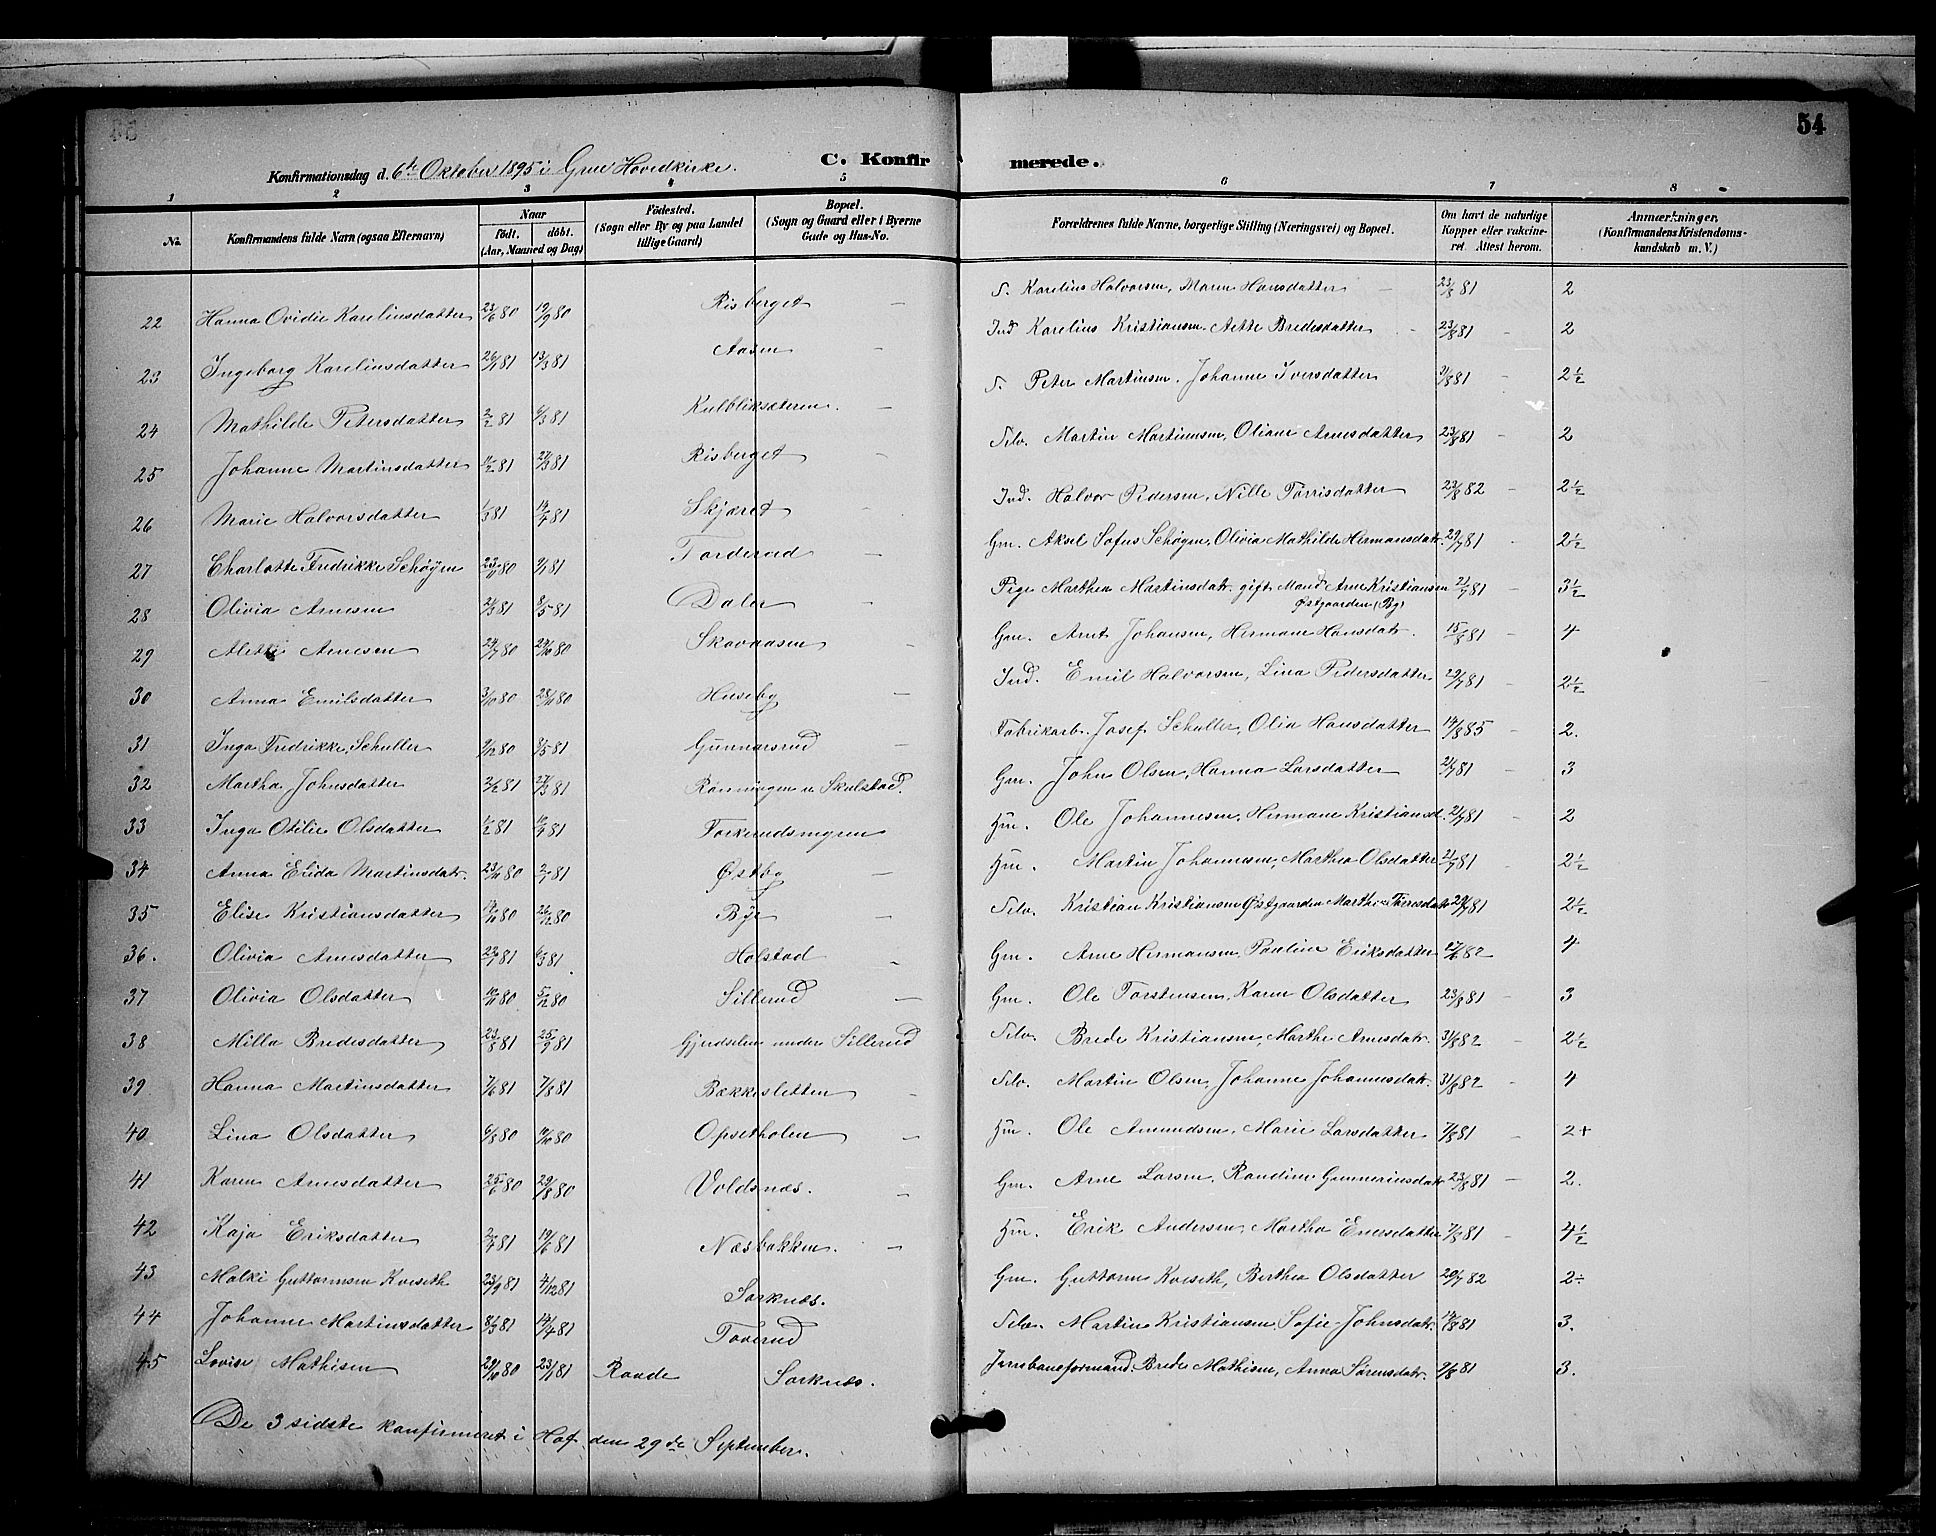 54
Konfirmationsdag d. 6te Oktober 1895 i Grue Hovedkirke. C. Konfirmerede.
1 2 3 4 5 6 7 8
No. Konfirmandens fulde Navn (ogsaa Efternavn) Naar født. døbt. (Aar, Maaned og Dag) Fødested. (Sogn eller By og paa Landet tillige Gaard) Bopæl. (Sogn og Gaard eller i Byerne Gade og Hus-No. Forældrenes fulde Navne, borgerlige Stilling (Næringsvei) og Bopæl. Om havt de naturlige Kopper eller vakcineret. Attest herom. Anmærkninger. (Konfirmandens Kristendomskundskab m. V.)
22 Hanna Ovidie Kareliusdatter 23/6 80 19/9 80 Risberget – S. Karelius Halvorsen, Maren Hansdatter 23/8 81 2
23 Ingeborg Kareliusdatter 26/1 81 13/3 81 Aasen – Ind Karelius Kristiansen, Aette Bredesdatter 23/8 81 – 2
24 Mathilde Petersdatter 2/2 81 6/3 81 Kulbliksæteren. – S. Peter Martinsen, Johanne Iversdatter 81 – 2½
25 Johanne Martinsdatter 11/2 81 27/3 81 Risberget – Selv. Martin Martinsen, Oliane Arnesdatter 23/8 81 – 2
26 Marie Halvorsdatter 1/3 81 81 Skjæret – Ind. Halvor Pedersen, Nille Torrisdatter 23/8 82 – 2½
27 Charlotte Fredrikke Schøyen 23/11 80 81 Torderud – Gm. Aksel Sofus Schøyen, Olivia Mathilde Hermansdatr. 29/7 81 – 2½
28 Olivia Arnesen 81 8/5 81 Daler – Pige Marthea Martinsdatr. gift Mand Arne Kristiansen Østgaarden (By) 21/7 81 – 3½
29 Alette Arnesen 80 80 Skavaasen – Gm. Arnt Johansen, Hermane Hansdatr. 15/8 81 – 4
30 Anna Emilsdatter 3/10 80 28/11 80 Huseby – Ind. Emil Halvorsen, Lina Pedersdatter 29/7 81 – 2½
31 Inga Fredrikke Schuller 9/12 80 8/5 81 Gunnarsrud – Fabrikarb. Josef Schuller, Olia Hansdatter 14/8 85 – 2.
32 Martha Johnsdatter 2/2 81 27/3 81 Rønningen u. Skulstad. Gm. John Olsen, Hanna Larsdatter 21/7 81 – 3
33 Inga Otilie Olsdatter 1/2 81 81 Torkerudsmyren Hm. Ole Johannesen, Hermane Kristiansd. 21/7 81 2
34 Anna Elida Martinsdatr. 23/11 80 2/1 81 Østby – Hm. Martin Johannesen, Marthea Olsdatter 21/7 81 – 2½
35 Elise Kristiansdatter 80 26/12 80 Bye – Selv. Kristian Kristiansen Østgaarden 29/7 81 2½
36. Olivia Arnesdatter 23/1 81 6/3 81 Holstad – Gm. Arne Hermansen, Pauline Eriksdatter 82 4
37 Olivia Olsdatter 80 5/12 80 Sillerud – Gm. Ole Torstensen, Karen Olsdatter 23/8 81 – 3
38 Milla Bredesdatter 23/8 81 25/9 81 Gjerdselen under Sillerud Selv. Brede Kristiansen, Marthe Arnesdatr. 31/8 82 – 2½
39 Hanna Martinsdatter 7/6 81 7/8 81 Bækkesletten – Selv. Martin Olsen, Johanne Johannesdatr. 31/8 82 – 4
40 Lina Olsdatter 6/8 80 80 Opsetholen – Hm. Ole Amundsen, Marie Larsdatter 7/8 81 – 2+
41 Karen Arnesdatter 25/6 80 29/8 80 Voldsnæs. – Gm. Arne Larsen, Randine Gunneriusdatr 23/8 81 – 2.
42 Kaja Eriksdatter 81 19/6 81 Næsbakken. – Hm. Erik Andersen, Martha Enersdatter 7/8 81 – 4½
43 Malki Guttormsen Kveseth 23/9 81 4/12 81 Sorknæs. Gm. Guttorm Kveseth, Berthea Olsdatter 20/7 82 2÷
44 Johanne Martinsdatter 8/3 81 14/4 81 Toverud Selv. Martin Kristiansen, Sofie Johnsdatr. 81 3.
45 Lovise Mathisen 29/10 80 23/1 81 Raade Sorknæs. Jernbaneformand Brede Mathisen, Anna Sørensdatr. 2/8 81 3.
De 3 sidste konfirmeret i Hof den 29de September.